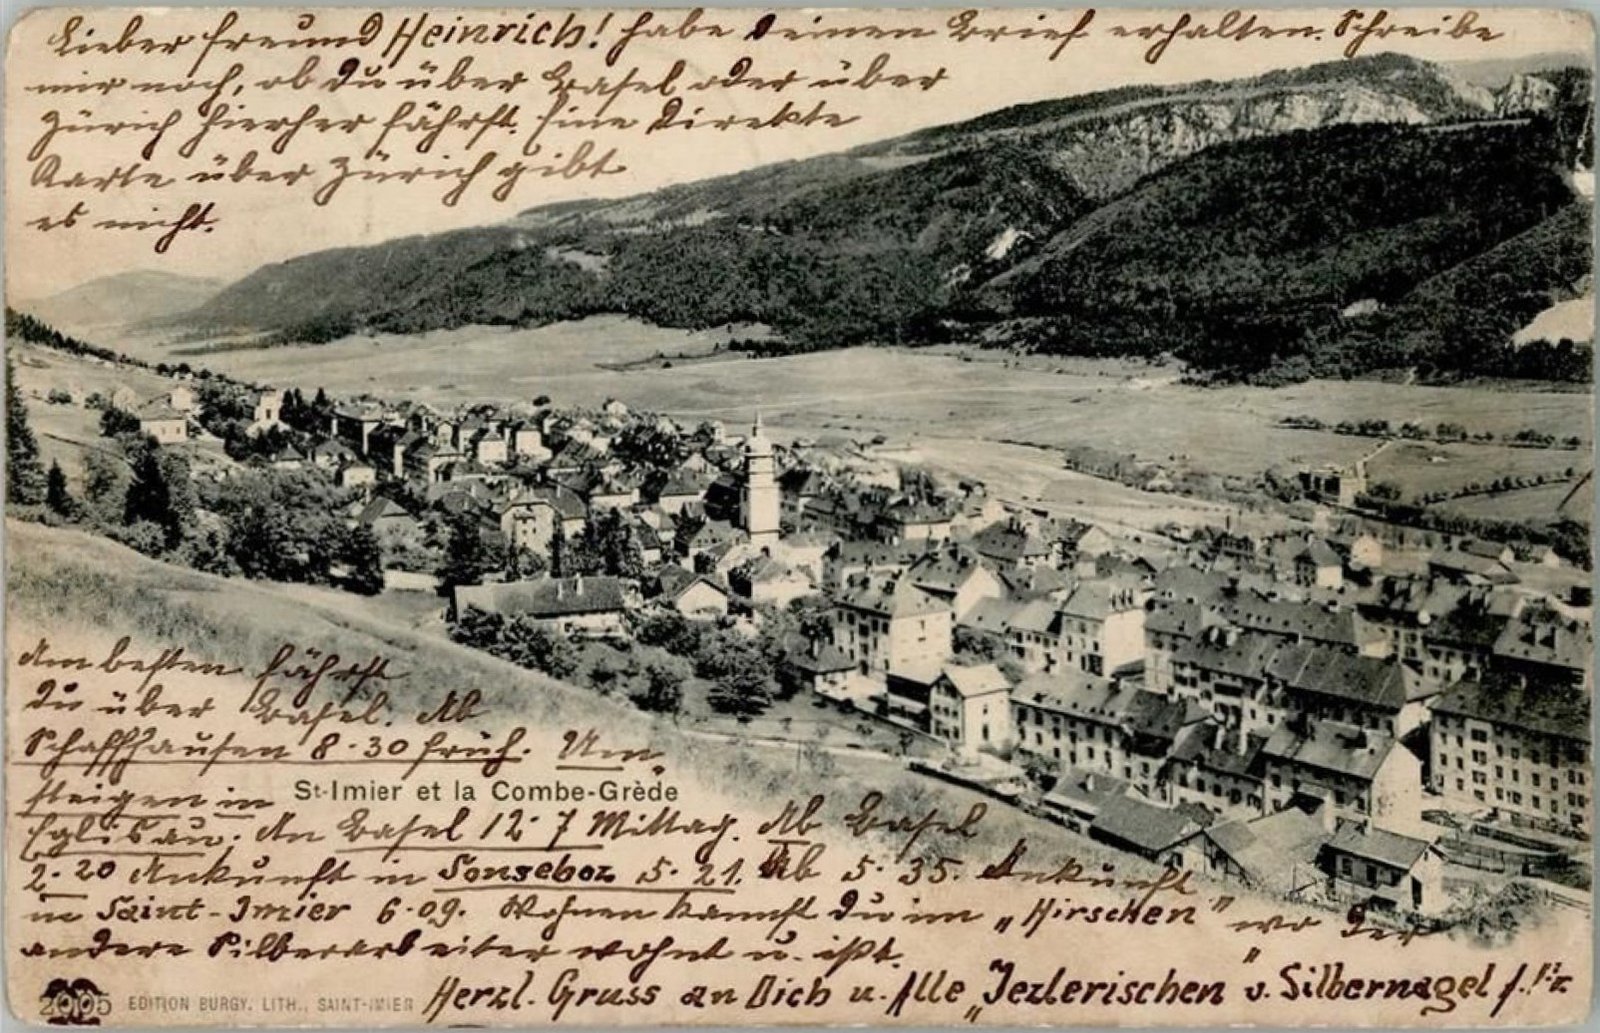 Lieber Freund Heinrich! habe Deinen Brief erhalten. Schreibe
mir noch, ob Du über Basel oder über
Zürich hierher fährst. Eine Direkte
Karte über Zürich gibt
es nicht.
Am besten fährst
Du über Basel. Ab
Schaffhausen 8·30 früh. Um„
steigen in
St-Imier et la Combe-Grède
Eglisau. An Basel 12·7 Mittag. Ab Basel
2·20 Ankunft in Sonzeboz 5·21. Ab 5·35. Ankunft
in Saint-Imier 6·09. Wohnen kannst Du im „Hirschen" wo der
andere Silberarbeiter wohnt u. ißt.
Herzl. Gruss an Dich u. Alle „Jezlerischen" v. Silbernagel
2005 EDITION BURGY. LITH., SAINT-IMIER